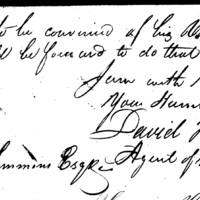 to be convinced of his
be found to do that
I am with
Your Hum
David
mmons Esqre Agent of